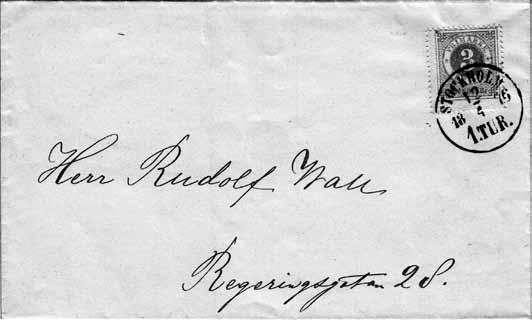 FRIMÄRKE
3
STOCKHOLM
12
18 4 75
1.TUR.
Herr Rudolf Wall
Regeringsgatan 28.